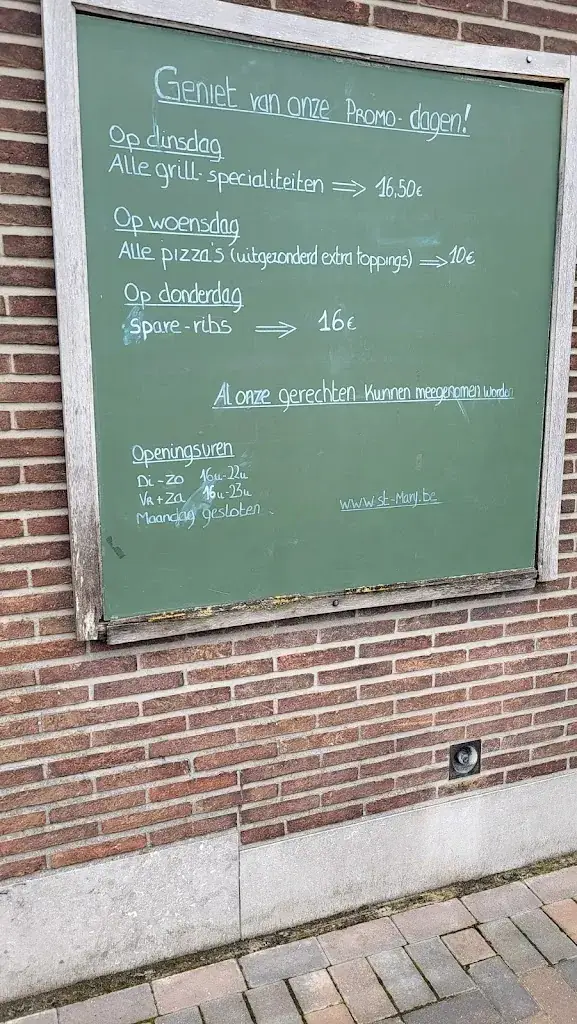 Geniet van onze PROMO-dagen!
Op dinsdag
Alle grill-specialiteiten ⇒ 16,50€
Op woensdag
Alle pizza's (uitgezonderd extra toppings) ⇒ 10€
Op donderdag
spare-ribs ⇒ 16€
Al onze gerechten kunnen meegenomen worden
Openingsuren
Di-Zo 16u-22u
VR+Za 16u-23u
Maandag gesloten
www.st-Mary.be